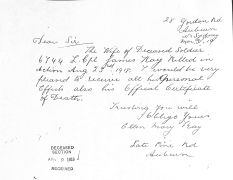 28 Gordon Rd
Auburn
Dear Sir
The Wife of Deceased Soldier
6744 L. Cpl James Ray Killed in
Action Aug 23rd 1918. I would be very
pleased to receive all his personal
Effects also his Offical Certifcate
of Death.
Trusting you will
Oblige Yours
Ellen Mary Ray
Late Pine Rd
Auburn
DECEASED
SECTION
RECEIVED